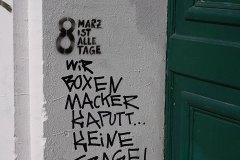 8 MÄRZ
IST
ALLE
TAGE
WIR
BOXEN
MACKER
KAPUTT...
KEINE
FRAGE!